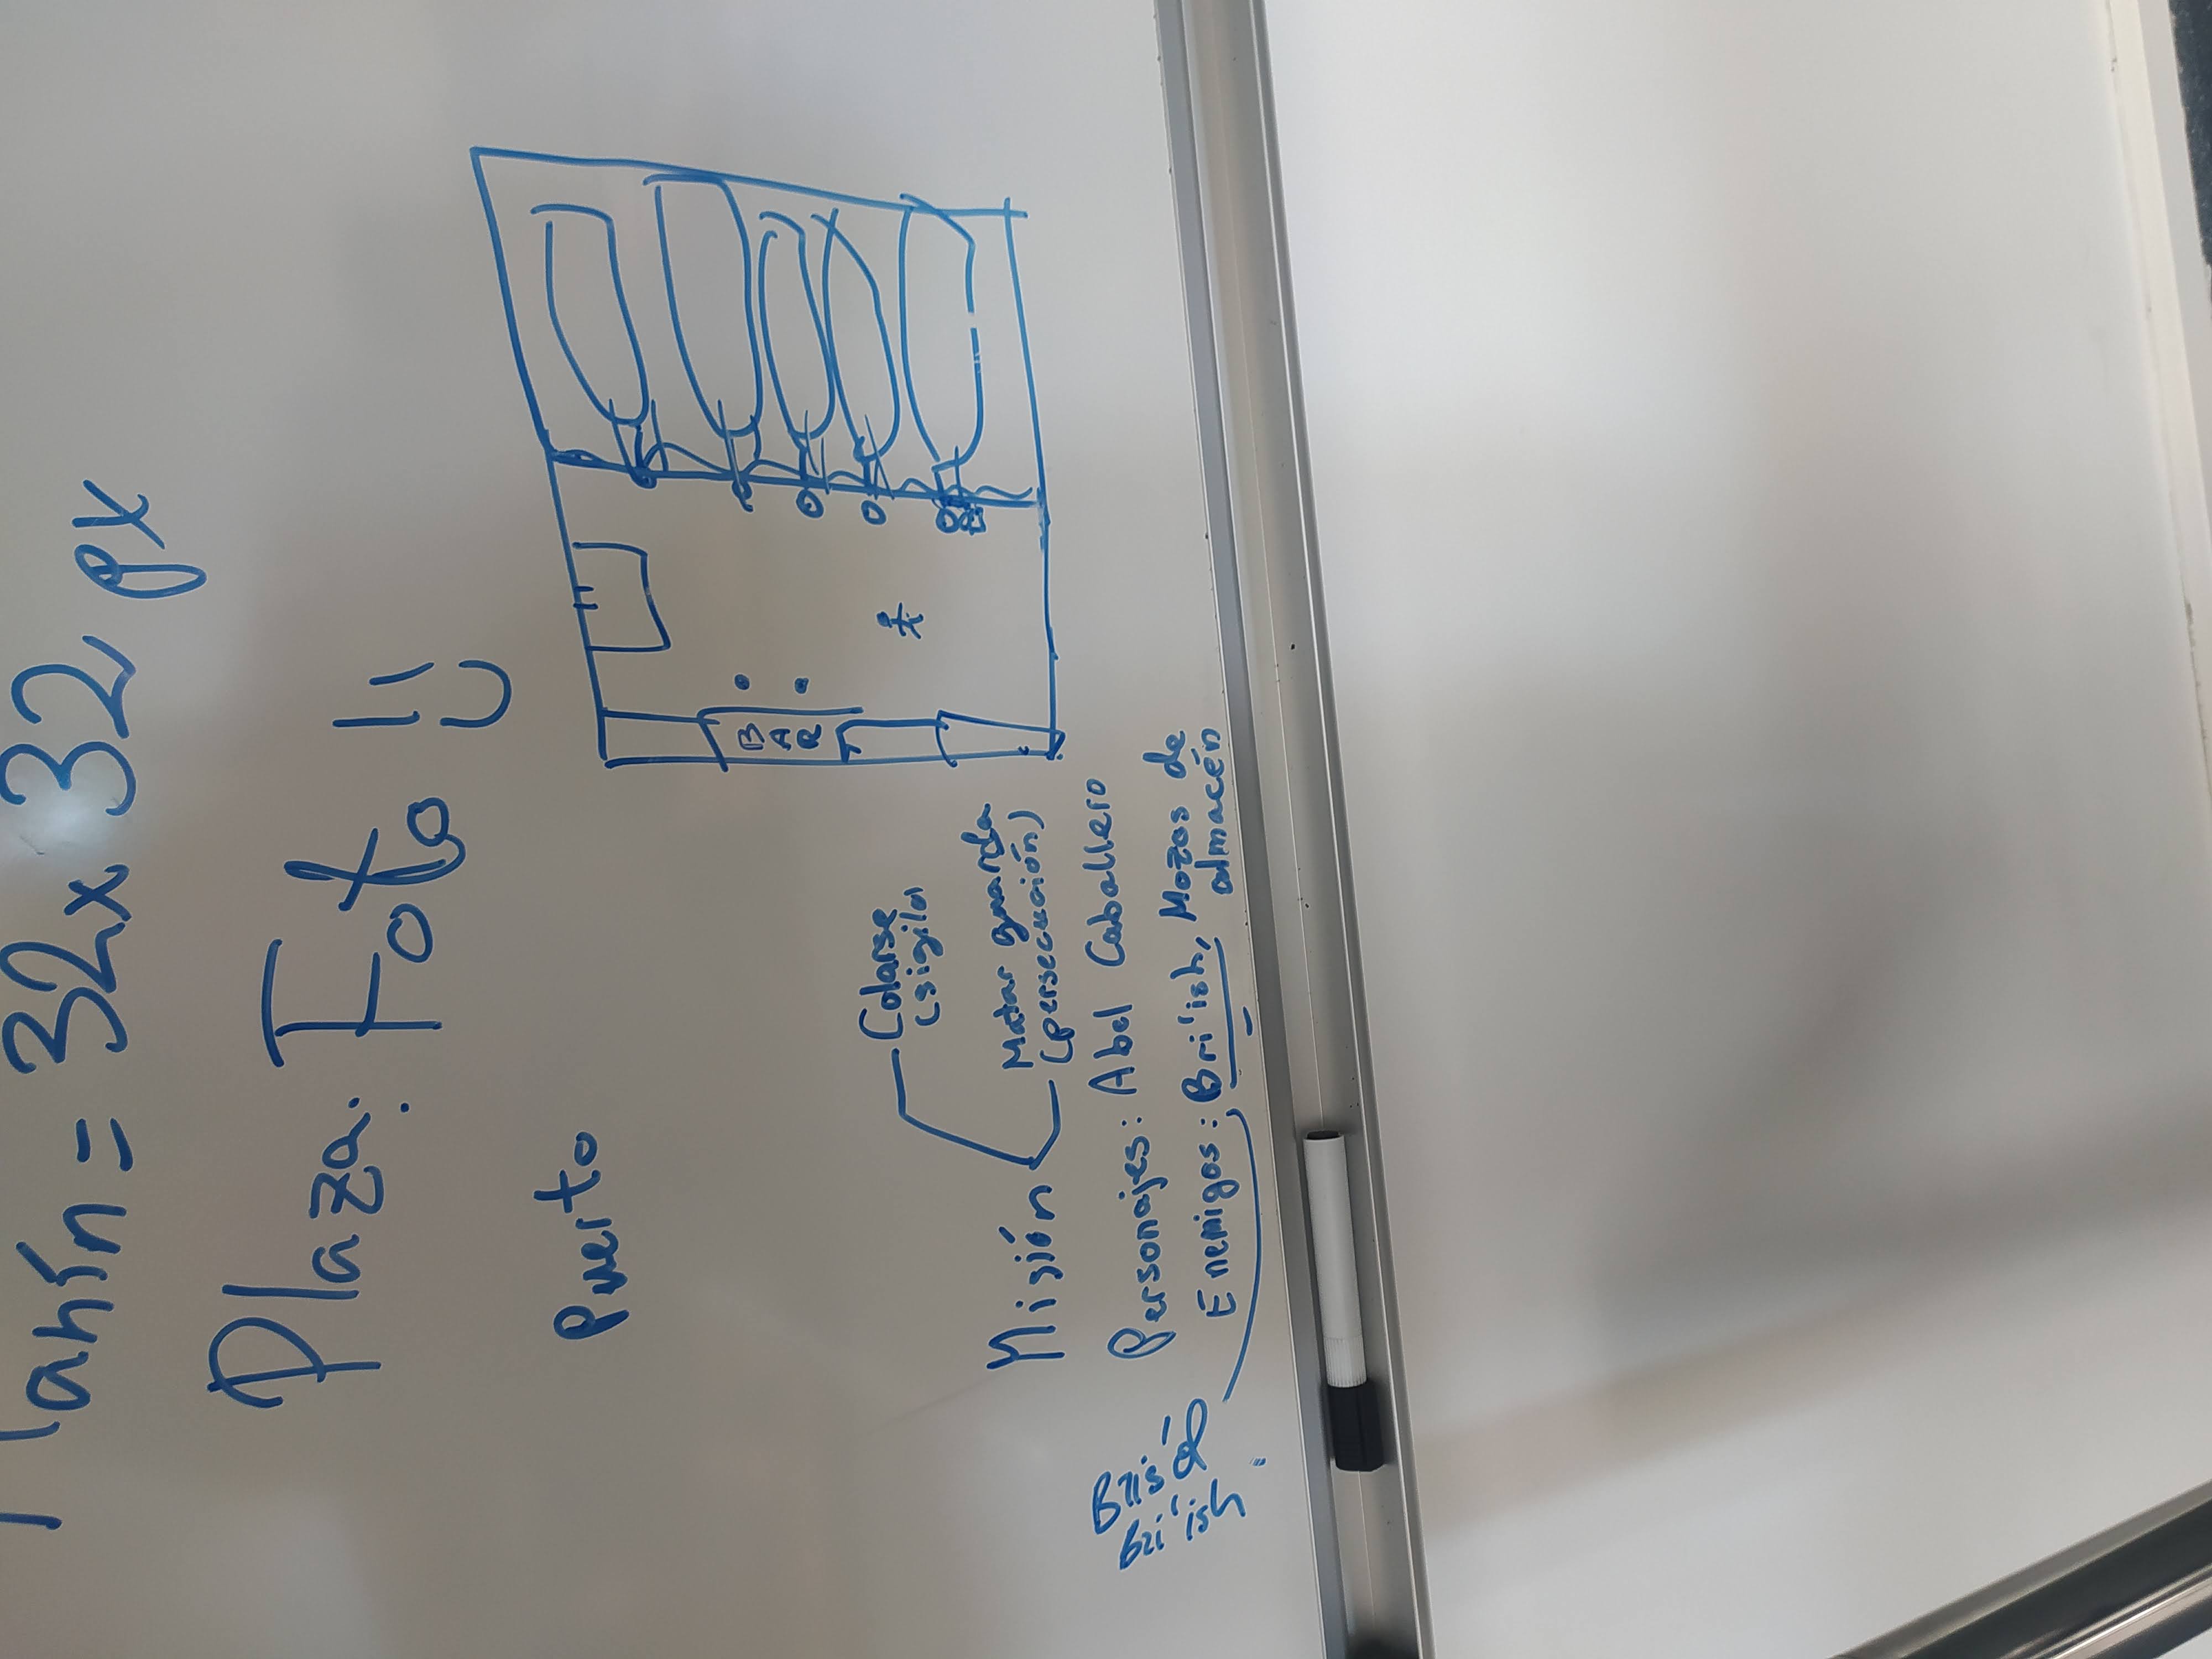 Manín = 32x32 px
Plaza: Foto !!
Puerto
BAR
Colarse
(sigilo)
Misión
Matar guarda
(persecución)
Personajes: Abel Caballero
Enemigos: Bri'ish, Mozos de
almacén